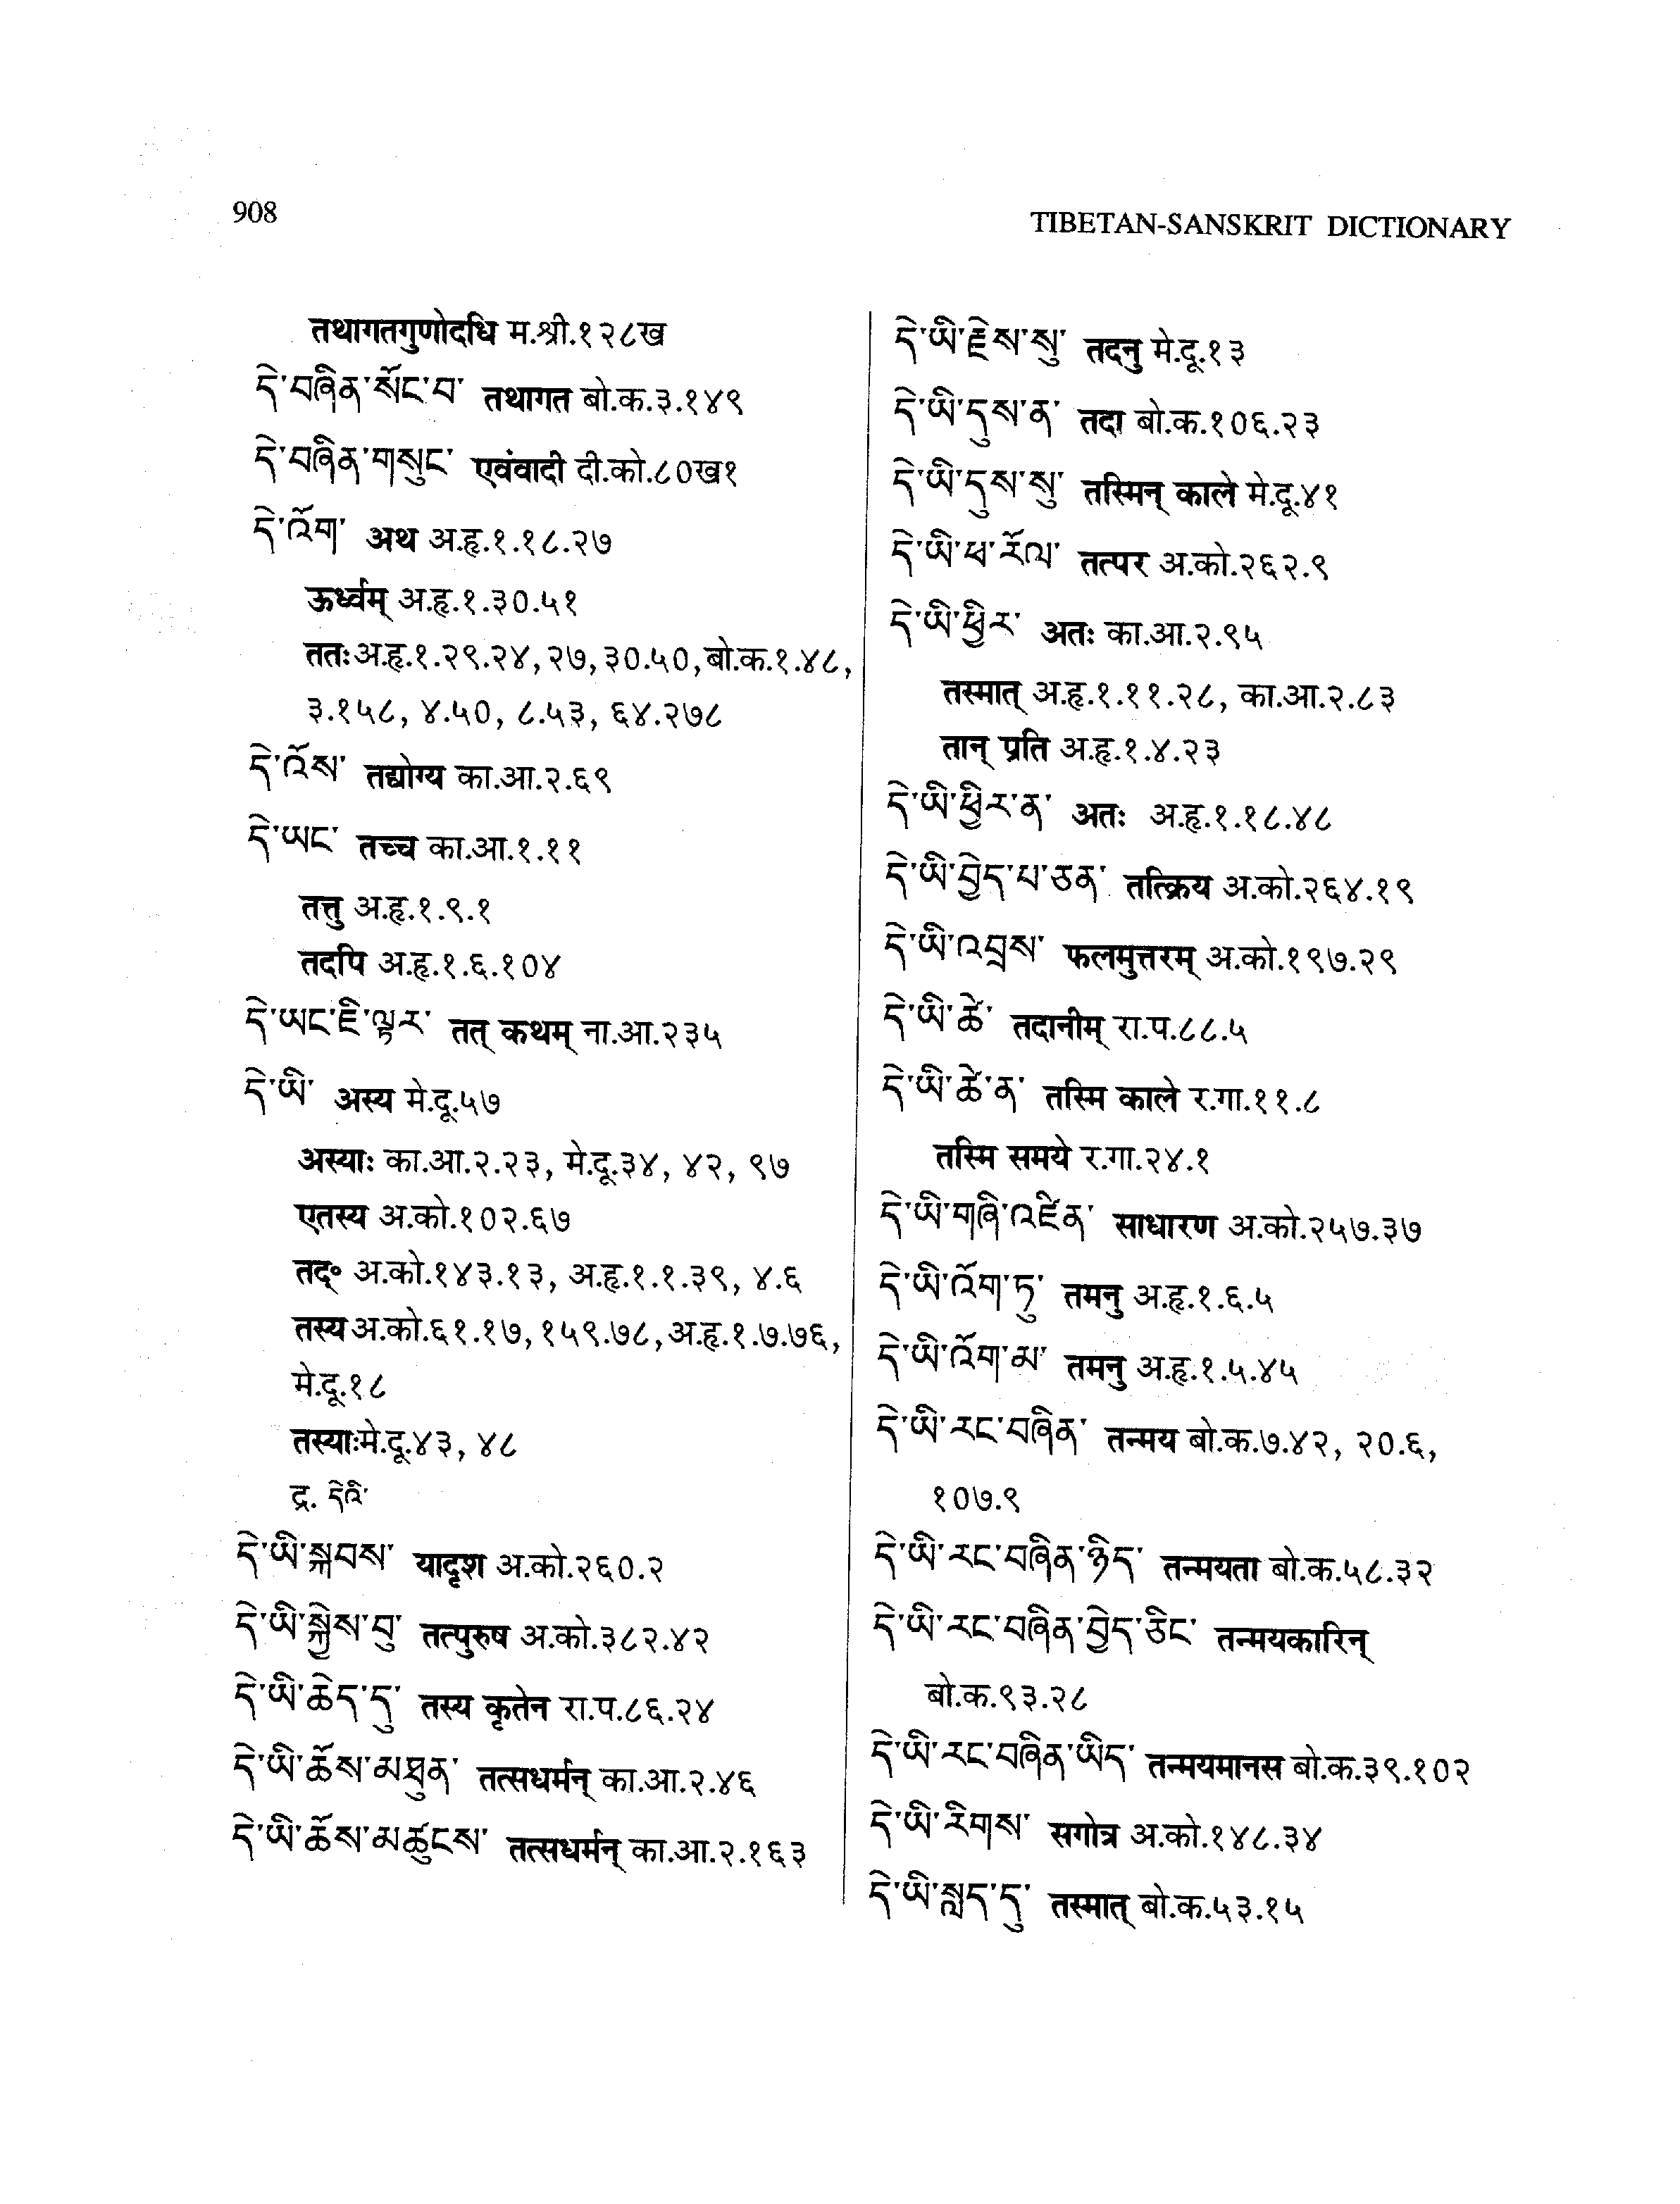 908
TIBETAN-SANSKRIT DICTIONARY
तथागतगुणोदधि म.श्री.१२८ख
དེ་བཞིན་སོང་བ་ तथागत बो.क.३.१४९
དེ་བཞིན་གསུང་ एवंवादी दी.को.८०ख१
དེ་འོག་ अथ अ.हृ.१.१८.२७
ऊर्ध्वम् अ.हृ.१.३०.५१
ततः अ.हृ.१.२९.२४, २७, ३०.५०, बो.क.१.४८,
३.१५८, ४.५०, ८.५३, ६४.२७८
དེ་འོས་ तद्योग्य का.आ.२.६९
དེ་ཡང་ तच्च का.आ.१.११
तत्तु अ.हृ.१.९.१
तदपि अ.हृ.१.६.१०४
དེ་ཡང་ཇི་ལྟར་ तत् कथम् ना.आ.२३५
དེ་ཡི་ अस्य मे.दू.५७
अस्याः का.आ.२.२३, मे.दू.३४, ४२, ९७
एतस्य अ.को.१०२.६७
तद्॰ अ.को.१४३.१३, अ.हृ.१.१.३९, ४.६
तस्य अ.को.६१.१७, १५९.७८, अ.हृ.१.७.७६,
मे.दू.१८
तस्याः मे.दू.४३, ४८
द्र. དེའི་
དེ་ཡི་སྐབས་ यादृश अ.को.२६०.२
དེ་ཡི་སྐྱེས་བུ་ तत्पुरुष अ.को.३८२.४२
དེ་ཡི་ཆེད་དུ་ तस्य कृतेन रा.प.८६.२४
དེ་ཡི་ཆོས་མཐུན་ तत्सधर्मन् का.आ.२.४६
དེ་ཡི་ཆོས་མཚུངས་ तत्सधर्मन् का.आ.२.१६३
དེ་ཡི་རྗེས་སུ་ तदनु मे.दू.१३
དེ་ཡི་དུས་ན་ तदा बो.क.१०६.२३
དེ་ཡི་དུས་སུ་ तस्मिन् काले मे.दू.४१
དེ་ཡི་ཕ་རོལ་ तत्पर अ.को.२६२.९
དེ་ཡི་ཕྱིར་ अतः का.आ.२.९५
तस्मात् अ.हृ.१.११.२८, का.आ.२.८३
तान् प्रति अ.हृ.१.४.२३
དེ་ཡི་ཕྱིར་ན་ अतः अ.हृ.१.१८.४८
དེ་ཡི་བྱེད་པ་ཅན་ तत्क्रिय अ.को.२६४.१९
དེ་ཡི་འབྲས་ फलमुत्तरम् अ.को.१९७.२९
དེ་ཡི་ཚེ་ तदानीम् रा.प.८८.५
དེ་ཡི་ཚེ་ན་ तस्मि काले र.गा.११.८
तस्मि समये र.गा.२४.१
དེ་ཡི་གཞི་འཛིན་ साधारण अ.को.२५७.३७
དེ་ཡི་འོག་ཏུ་ तमनु अ.हृ.१.६.५
དེ་ཡི་འོག་མ་ तमनु अ.हृ.१.५.४५
དེ་ཡི་རང་བཞིན་ तन्मय बो.क.७.४२, २०.६,
१०७.९
དེ་ཡི་རང་བཞིན་ཉིད་ तन्मयता बो.क.५८.३२
དེ་ཡི་རང་བཞིན་བྱེད་ཅིང་ तन्मयकारिन्
बो.क.९३.२८
དེ་ཡི་རང་བཞིན་ཡིད་ तन्मयमानस बो.क.३९.१०२
དེ་ཡི་རིགས་ सगोत्र अ.को.१४८.३४
དེ་ཡི་སླད་དུ་ तस्मात् बो.क.५३.१५